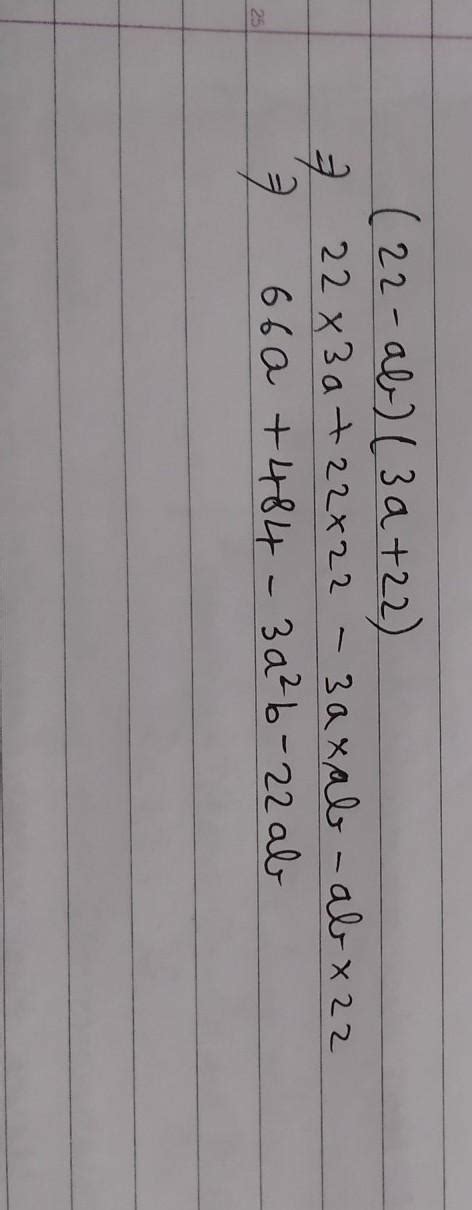 25
(22-ab)(3a+22)
⇒ 22×3a+22×22-3a×ab-ab×22
⇒ 66a+484-3a²b-22ab